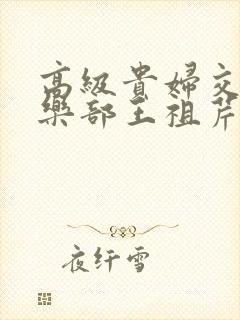 高級貴婦交
樂部王祖芹
夜纤雪